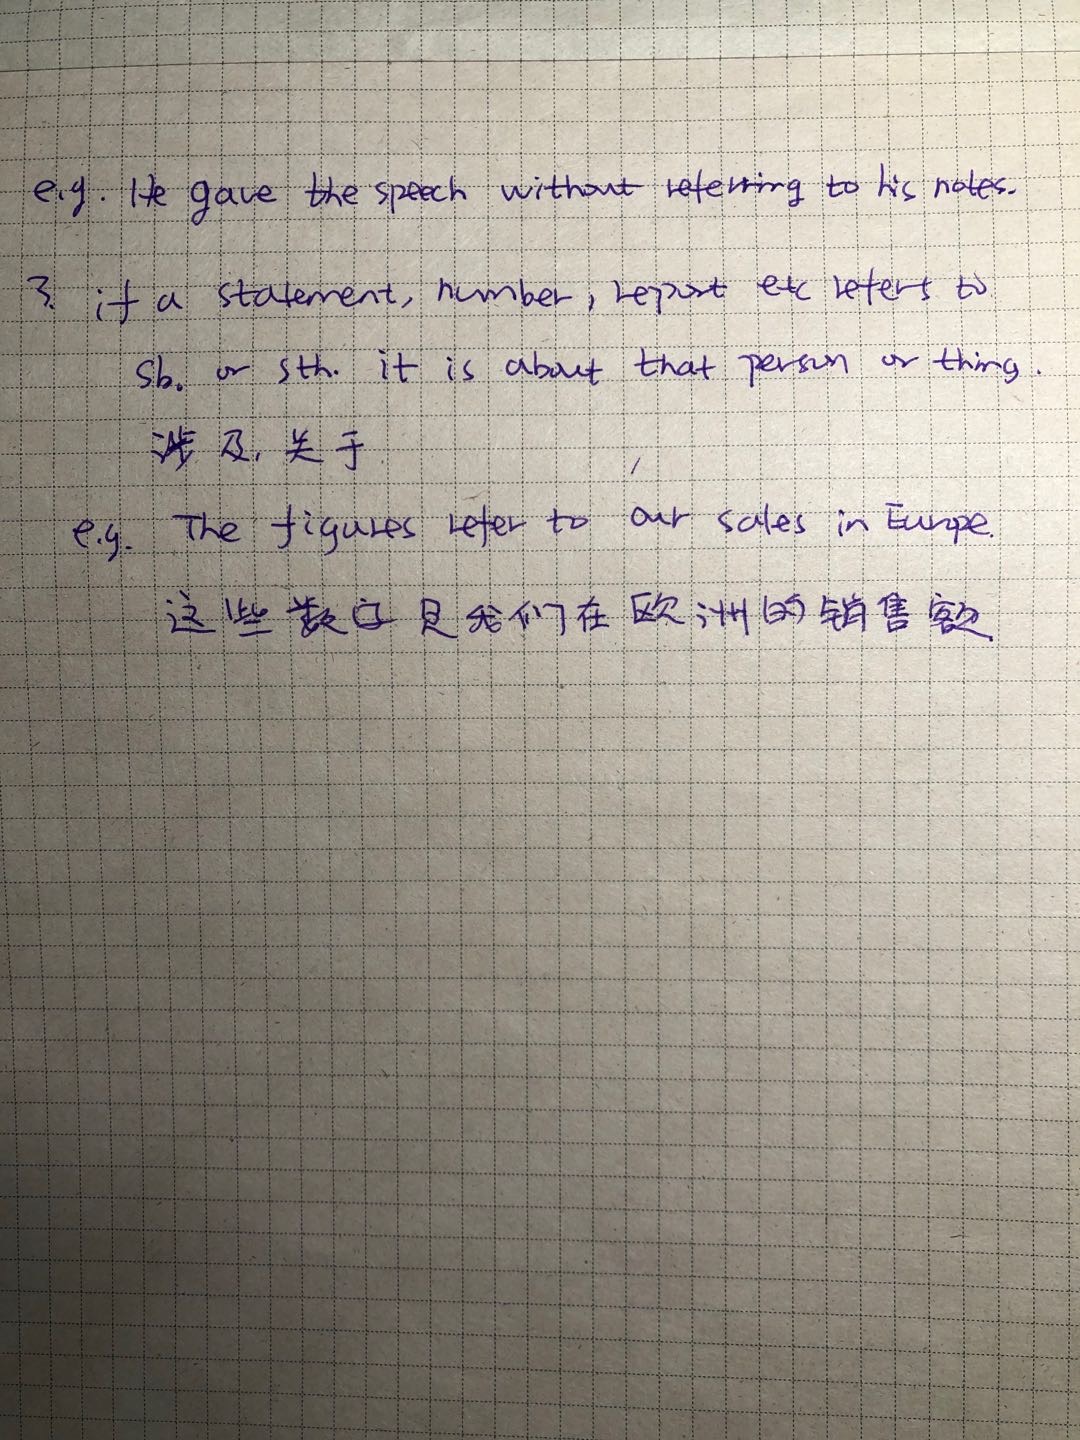 e.g. He gave the speech without referring to his notes.
3. if a statement, number, report etc refers to
sb. or sth. it is about that person or thing.
涉及, 关于
e.g. The figures refer to our sales in Europe.
这些数字是我们在欧洲的销售额